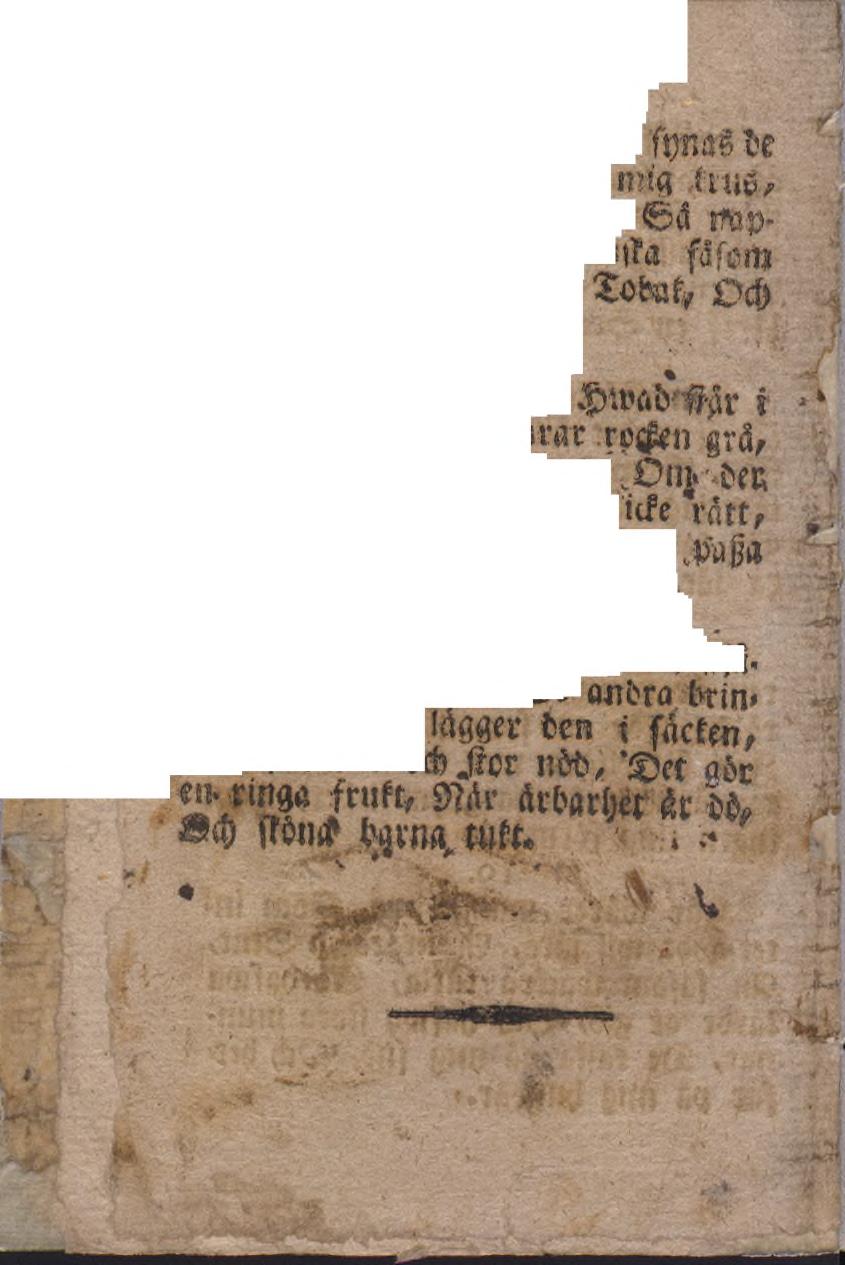 synas de
mig krus,
Så nap-
ska såsom
Tobak, Och
Hwad står i
rar rocken grå,
Om den
icke rätt,
paßa
andra brin-
lägger den i säcken,
ch stor nöd, Det gör
en ringa frukt, När ärbarhet är dö,
Och sköna barna tukt.